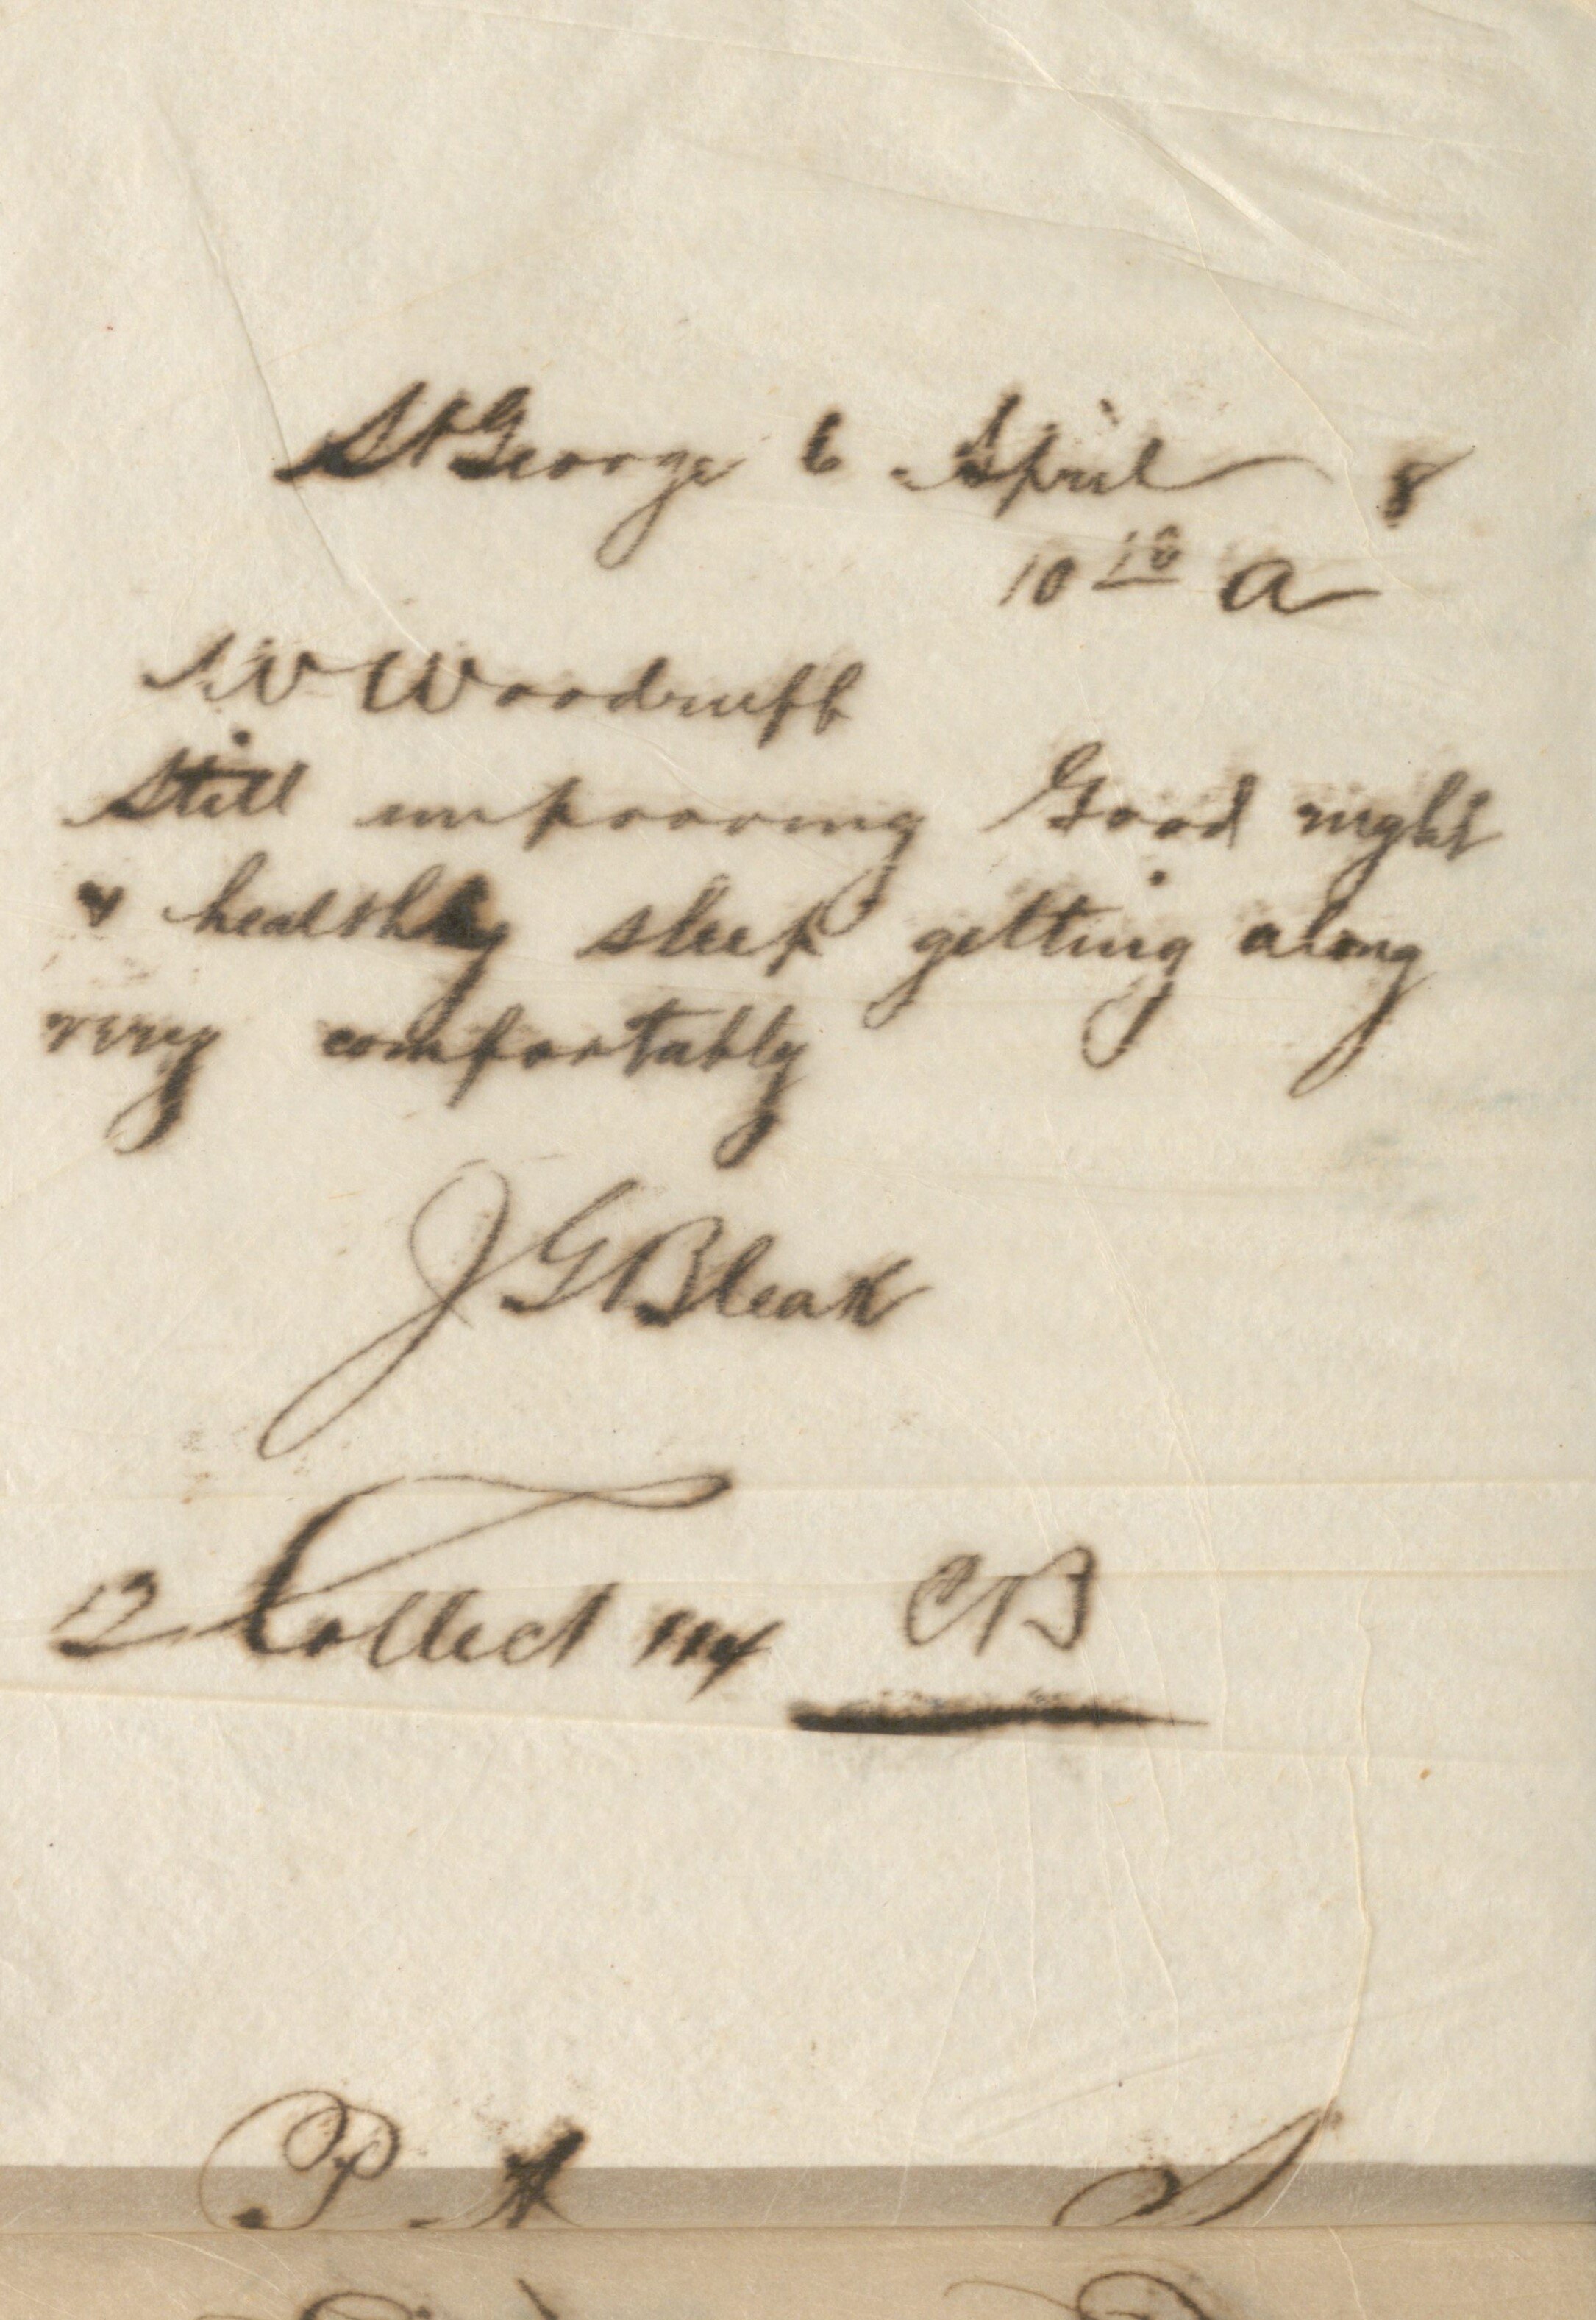 St George 6 April 8
10 10 a
W Woodruff
Still improving Good night
& healthy sleep getting along
very comfortably
J G Bleak
12 Collect 114 CB
P A S